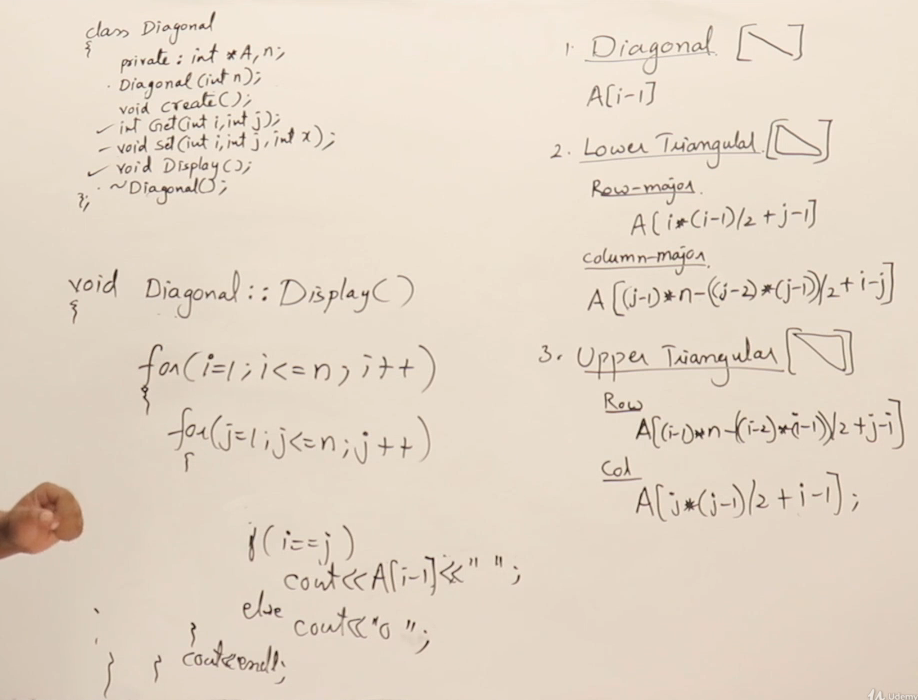 class Diagonal
{
private: int *A, n;
Diagonal(int n);
void create();
int Get(int i, int j);
void set(int i, int j, int x);
void Display();
~Diagonal();
};
void Diagonal::Display()
{
for(i=1; i<=n; i++)
{
for(j=1; j<=n; j++)
{
if(i==j)
cout<<A[i-1]<<" ";
else
cout<<"0 ";
}
cout<<endl;
}
}
1. Diagonal
A[i-1]
2. Lower Triangular
Row-major
A[i*(i-1)/2+j-1]
column-major
A[(j-1)*n-((j-2)*(j-1))/2+i-j]
3. Upper Triangular
Row
A[(i-1)*n-((i-2)*(i-1))/2+j-i]
Col
A[j*(j-1)/2+i-1];
Udemy